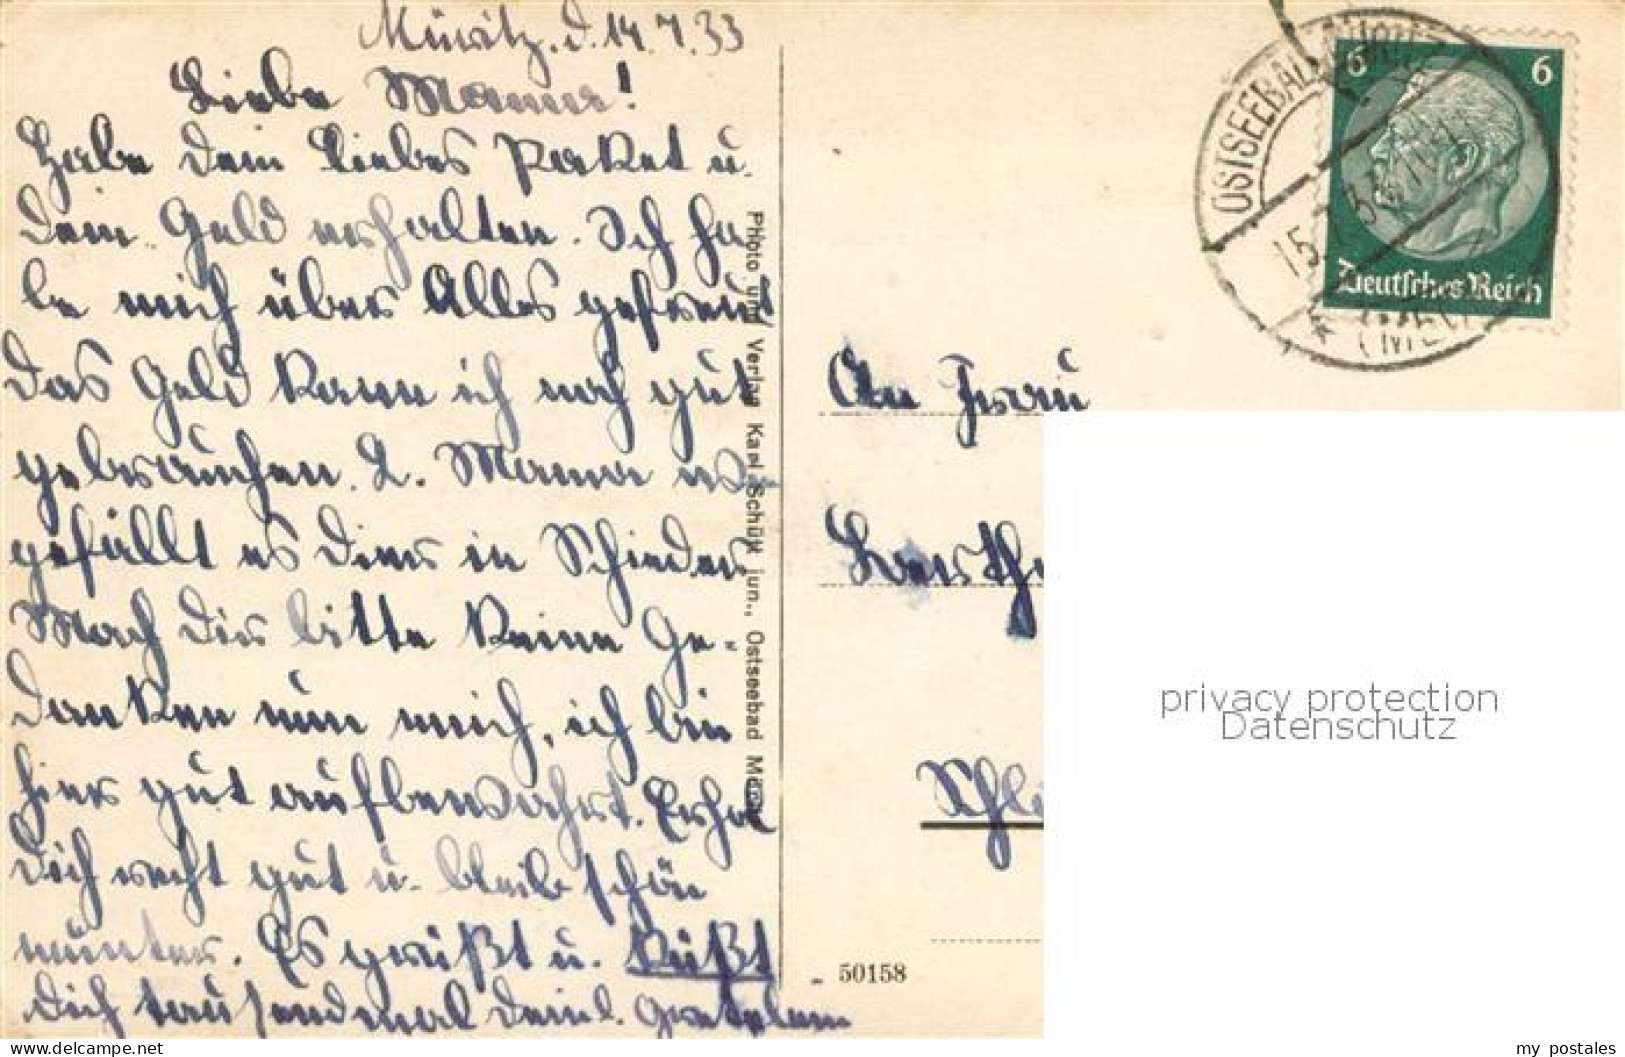 Müritz, d. 14.7.33
Liebe Mama!
Habe Dein liebes Paket u.
Dein Geld erhalten. Ich ha
be mich über Alles gefreut
Das Geld kann ich noch gut
gebrauchen. L. Mama
gefällt es Dier in Schieder
Mach Dir bitte keine Ge-
danken um mich, ich bin
hier gut aufbewahrt. Erhol
Dich recht gut u. bleib schön
munter. Es grüßt u. küßt
Dich tausendmal Dein l. Gretelein
Photo und Verlag Karl Schütt jun., Ostseebad Müritz
50158
OSTSEEBAD
15. 33
(MECKL)
6 6
Deutsches Reich
An Frau
privacy protection
Datenschutz
www.ansichtskarten-center.de
my postales